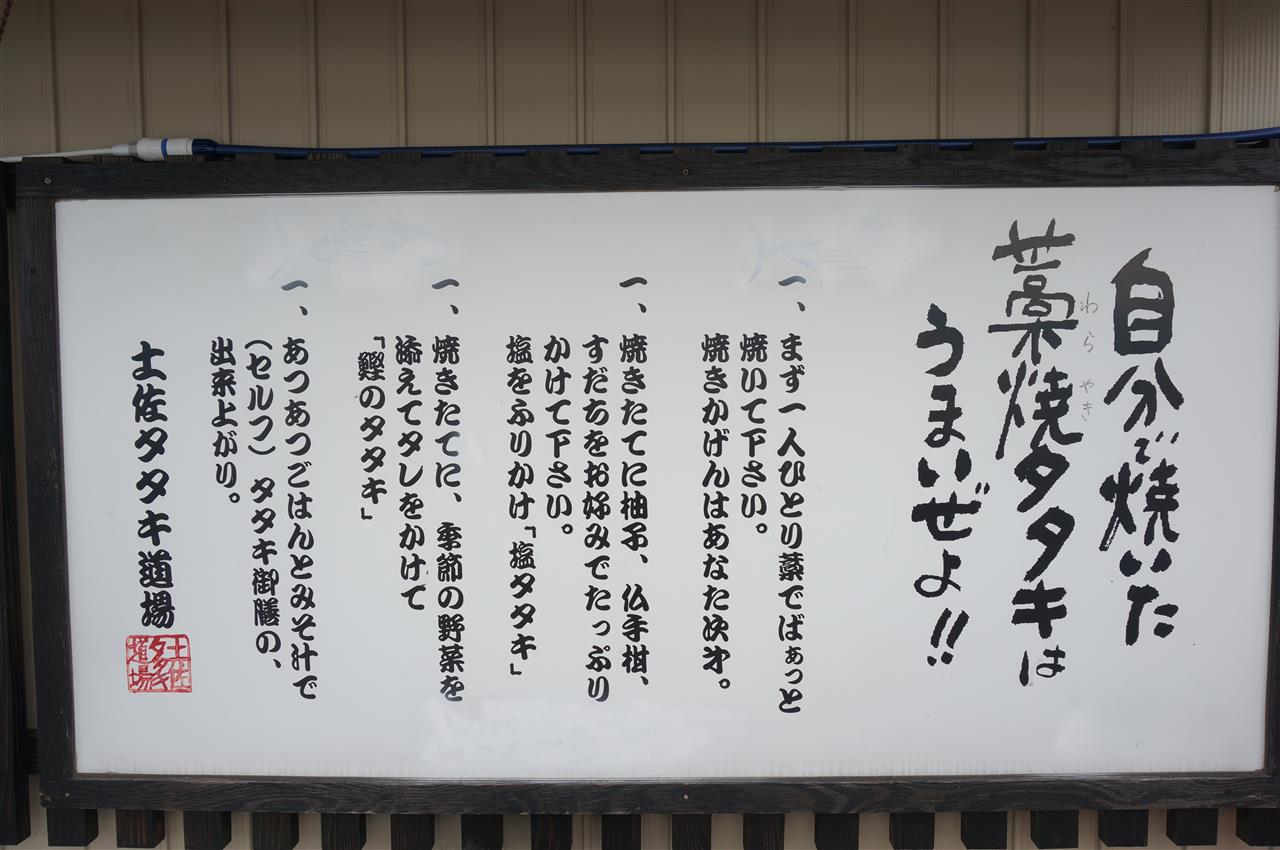 自分で焼いた
藁焼タタキは
わらやき
うまいぜよ!!
一、まず一人ひとり藁でばぁっと
焼いて下さい。
焼きかげんはあなた次才。
一、焼きたてに柚子、仏手柑、
すだちをお好みでたっぷり
かけて下さい。
塩をふりかけ「塩タタキ」
一、焼きたてに、季節の野菜を
添えてタレをかけて
「鰹のタタキ」
一、あつあつごはんとみそ汁で
(セルフ)タタキ御膳の、
出来上がり。
土佐タタキ道場
土佐
タタキ
道場